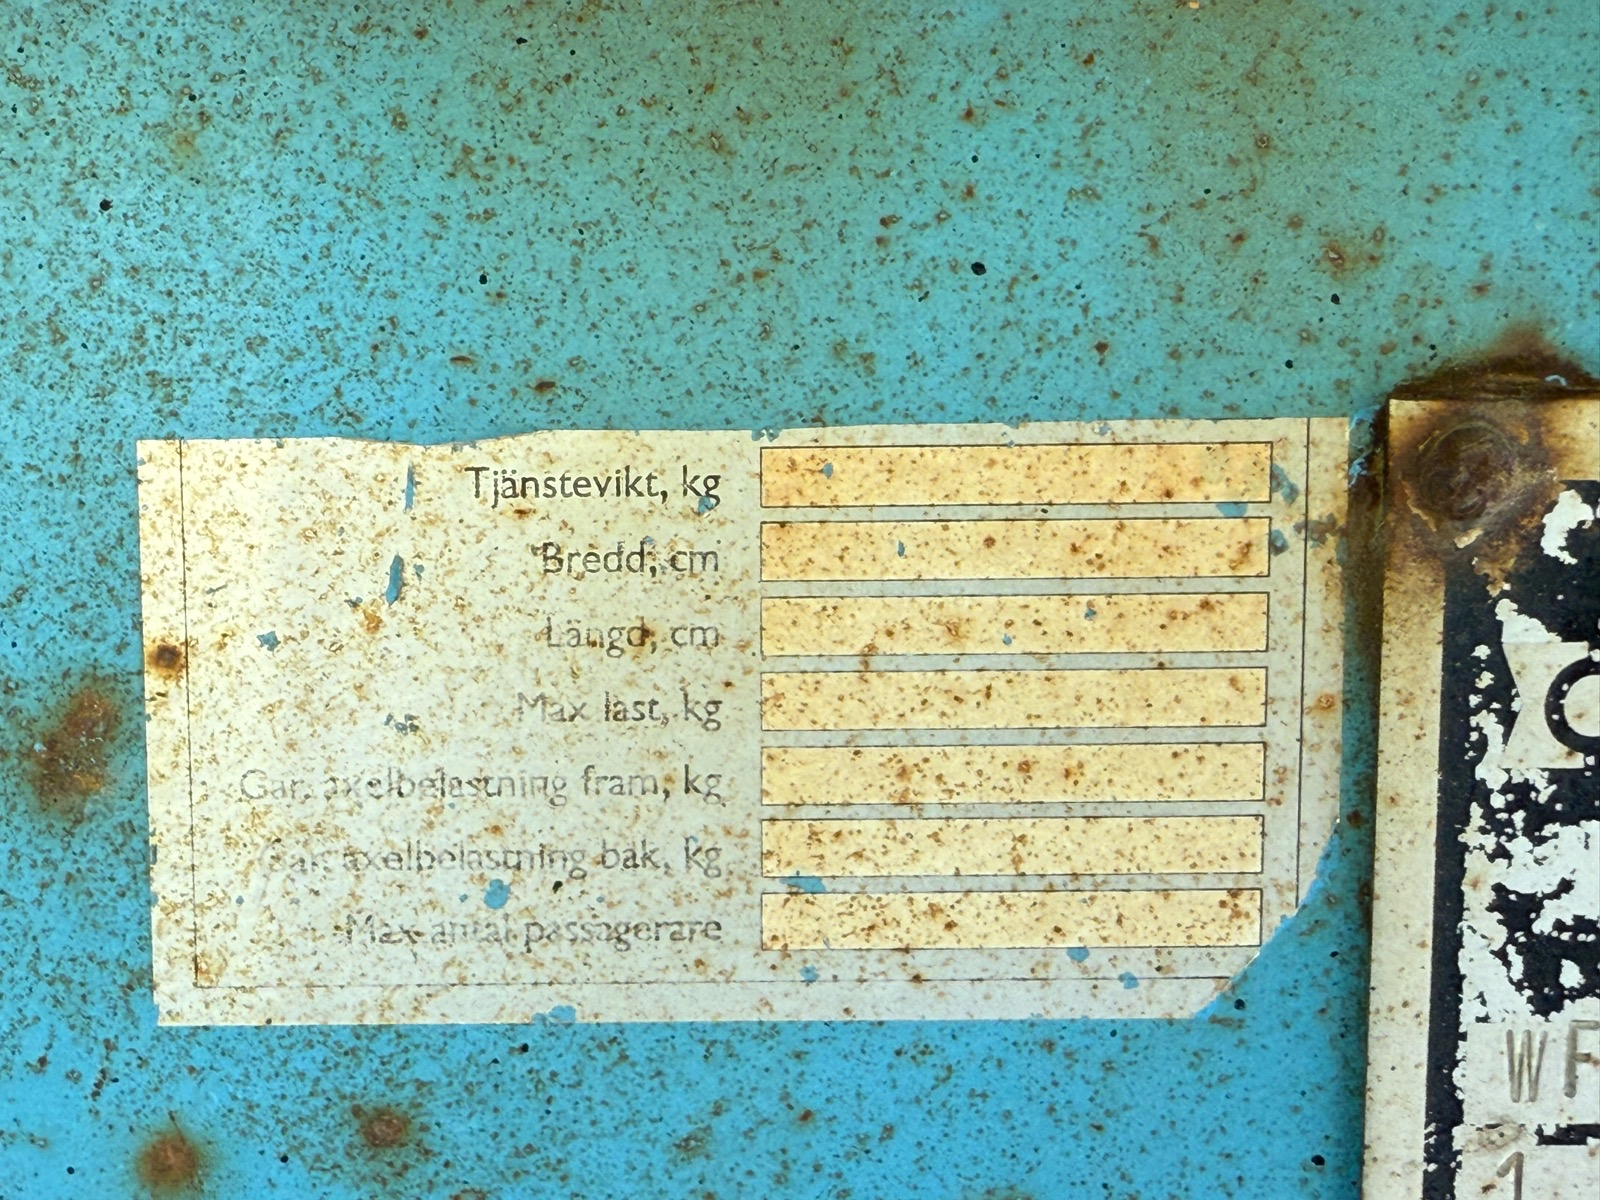 Tjänstevikt, kg
Bredd, cm
Längd, cm
Max last, kg
Gar. axelbelastning fram, kg
Gar. axelbelastning bak, kg
Max antal passagerare
WF
1